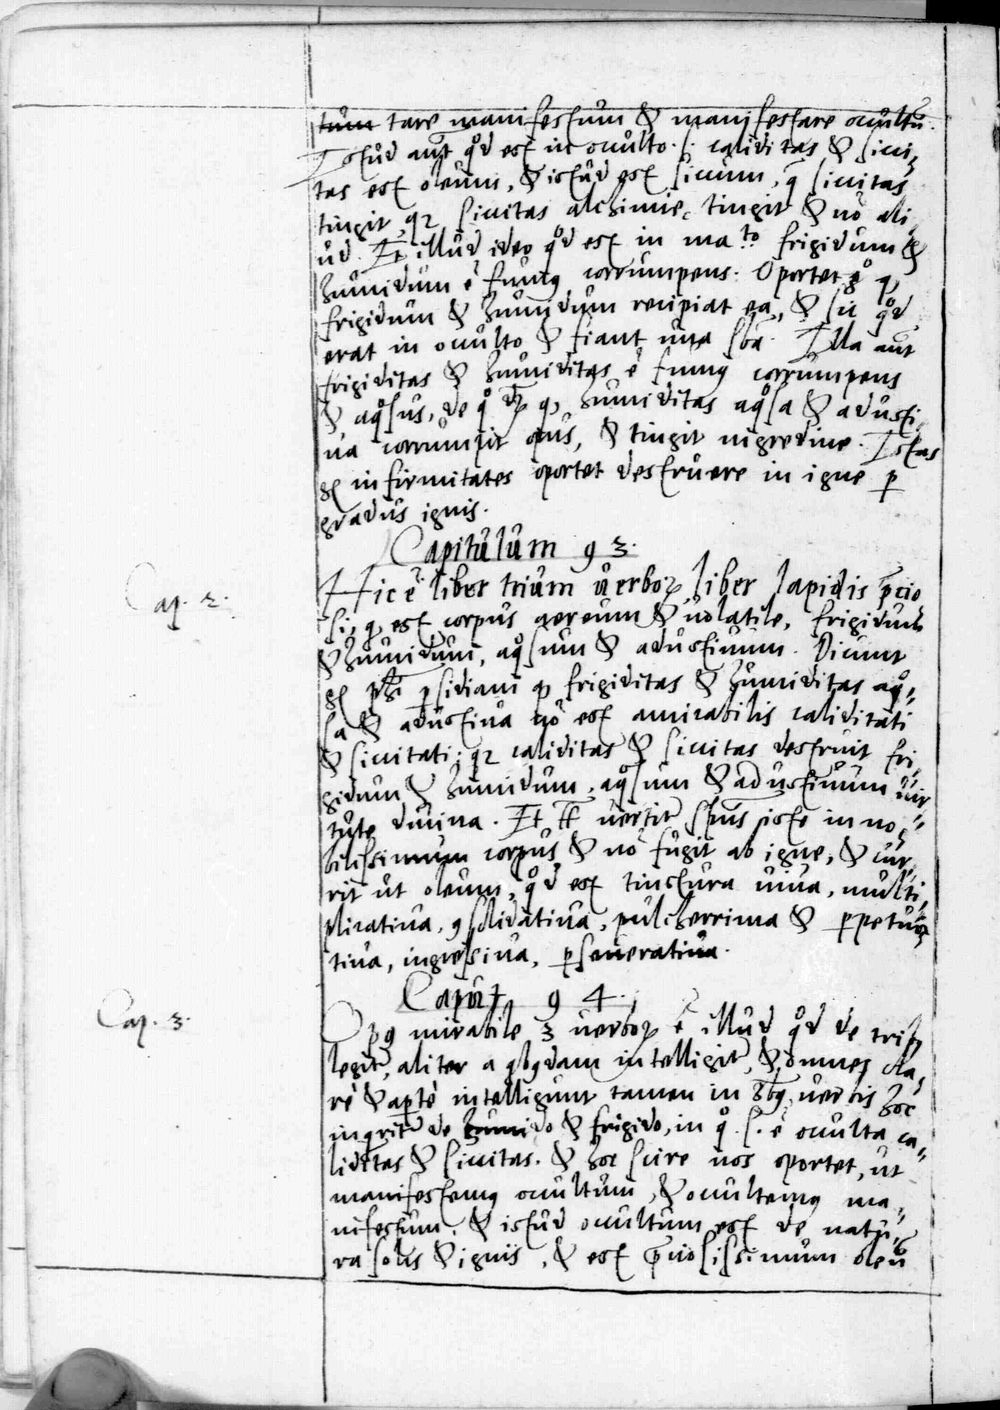 tum tare manifestum & manifestare ocultũ.
Istud aut̃ qd̊ est in oculto .s. caliditas & sicci-
tas est oleum, & istud est siccum, q̃ siccitas
tingit, qꝛ siccitas alchimie tingit & nõ ali-
ud. Et illud ideo qd̊ est in ma.to frigidum &
humidum ẽ fumꝰ corrumpens. Oportet gͦ qꝫ
frigidum & humidum recipiat ea, & sic qd̊
erat in oculto & fiant una sbã. Illa aut̃
frigiditas & humiditas ẽ fumꝰ corrumpens
& aqͦsus, de qͦ dꝛ qꝫ humiditas aqͦsa & adusti-
va corrumpit opus, & tingit nigredine. Istas
gͦ infirmitates oportet destruere in igne ꝑ
gradus ignis.
Capitulum 93.
Cap. 2. Hic ẽ liber trium verboꝝ, liber lapidis p̃cio
si, qͥ est corpus aereum & volatile, frigidum
& humidum, aqͦsum & adustivum. Dicunt
gͦ phĩ ꝑsidiani qꝫ frigiditas & humiditas aqͦ-
sa & adustiva nõ est amicabilis caliditati
& siccitati; qꝛ caliditas & siccitas destruit fri-
gidum & humidum, aqͦsum & adustivum vir
tute divina. Et tc̃ vertit̃ spũs iste in no-
bilissimum corpus & nõ fugit ab igne, & cur-
rit ut oleum, qd̊ est tinctura viva, multi-
plicativa, ꝯsolidativa, pulcherrima & ꝑpetua-
tiva, ingressiva, ꝑseverativa.
Caput 94.
Cap. 3. Opꝰ mirabile 3 verboꝝ ẽ illud qd̊ de tribꝫ
legit̃, aliter a qbꝰdam intelligit̃, & omnes cla-
rè & aptè intelligunt tamen in qbꝰ verbis hoc
inqrit̃ de humido & frigido, in qͦ .s. ẽ oculta ca-
liditas & siccitas. & hoc scire nos oportet, ut
manifestemꝰ ocultum, & ocultemꝰ ma-
nifestum, & istud ocultum est de natu-
ra solis & ignis, & est p̃ciosissimum oleũ